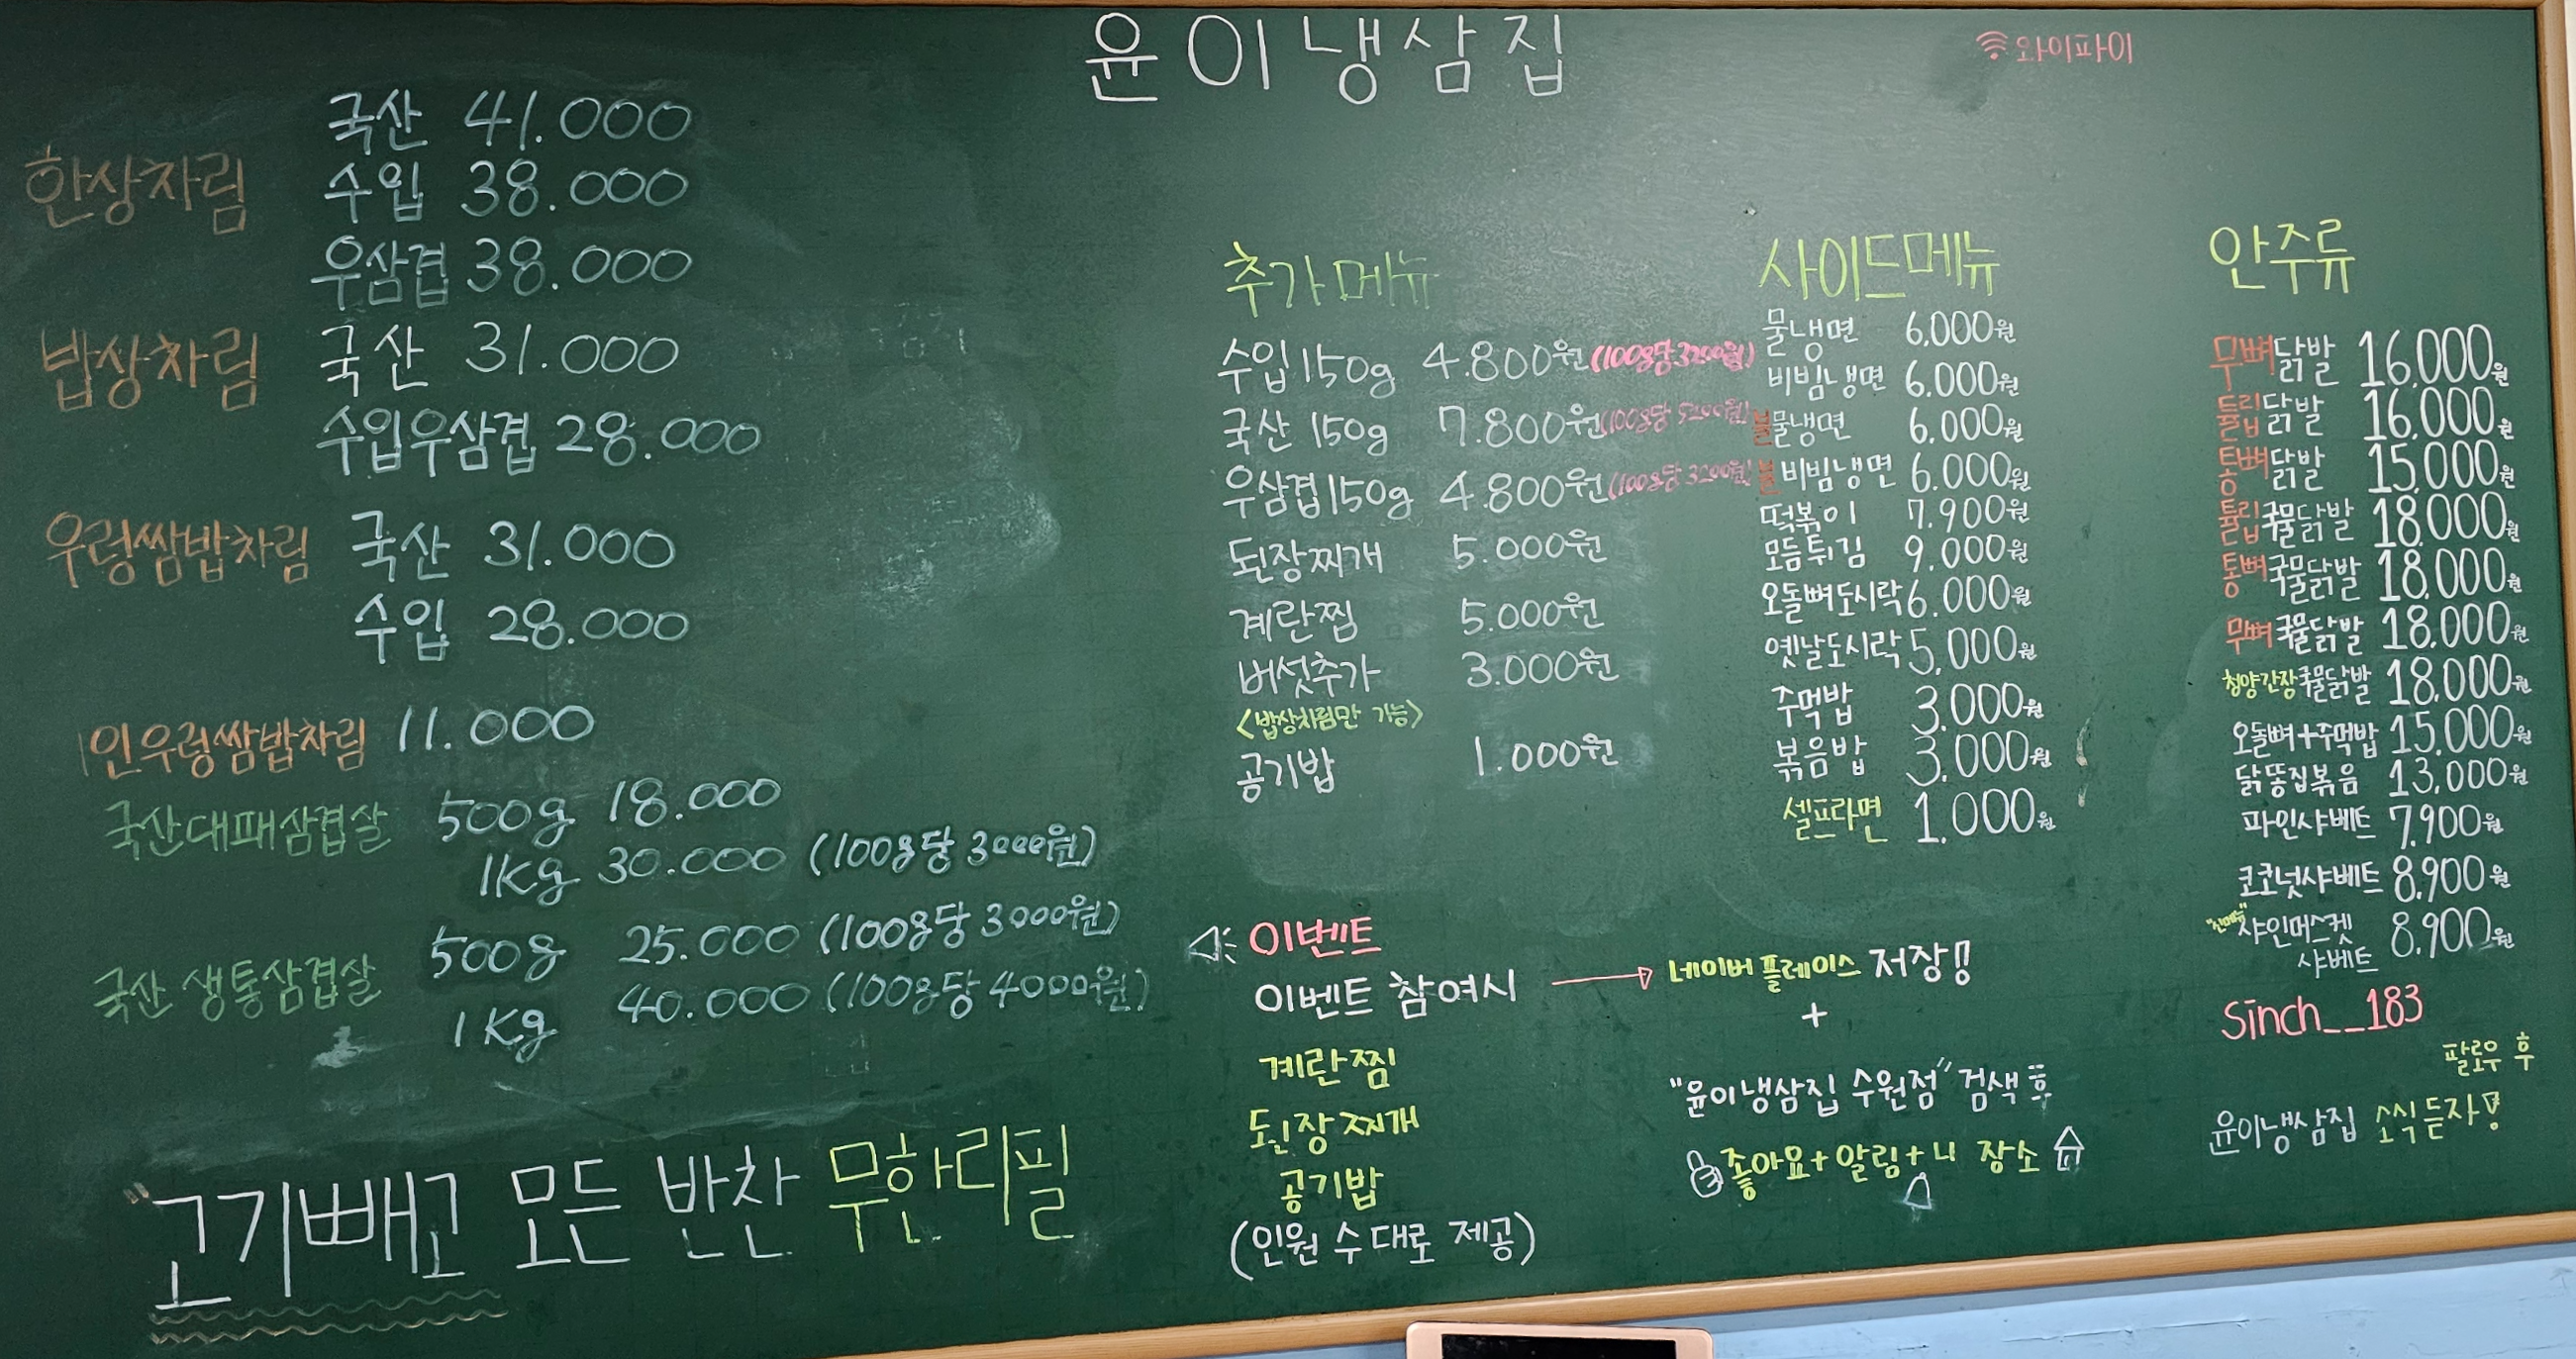 윤이냉삼집
와이파이
한상차림
국산 41.000
수입 38.000
우삼겹 38.000
밥상차림
국산 31.000
수입우삼겹 28.000
우렁쌈밥차림
국산 31.000
수입 28.000
1인우렁쌈밥차림 11.000
국산대패삼겹살
500g 18.000
1Kg 30.000 (100g당 3000원)
국산 생통삼겹살
500g 25.000 (100g당 3000원)
1Kg 40.000 (100g당 4000원)
"고기빼고 모든 반찬 무한리필
추가메뉴
수입150g 4.800원 (100g당 3200원)
국산 150g 7.800원 (100g당 5200원)
우삼겹150g 4.800원 (100g당 3200원)
된장찌개 5.000원
계란찜 5.000원
버섯추가 3.000원
<밥상차림만 가능>
공기밥 1.000원
사이드메뉴
물냉면 6.000원
비빔냉면 6.000원
불물냉면 6.000원
불비빔냉면 6.000원
떡볶이 7.900원
모듬튀김 9.000원
오돌뼈도시락 6.000원
옛날도시락 5,000원
주먹밥 3.000원
볶음밥 3,000원
셀프라면 1.000원
안주류
무뼈닭발 16,000원
튤립닭발 16,000원
통뼈닭발 15,000원
튤립국물닭발 18,000원
통뼈국물닭발 18,000원
무뼈국물닭발 18,000원
청양간장국물닭발 18,000원
오돌뼈+주먹밥 15,000원
닭똥집볶음 13,000원
파인샤베트 7,900원
코코넛샤베트 8,900원
"신메뉴"
샤인머스켓 샤베트 8,900원
Sinch__183
팔로우 후
윤이냉삼집 소식듣자!
이벤트
이벤트 참여시
계란찜
된장찌개
공기밥
(인원 수대로 제공)
네이버플레이스 저장!!
+
"윤이냉삼집 수원점" 검색후
좋아요+알림+내 장소